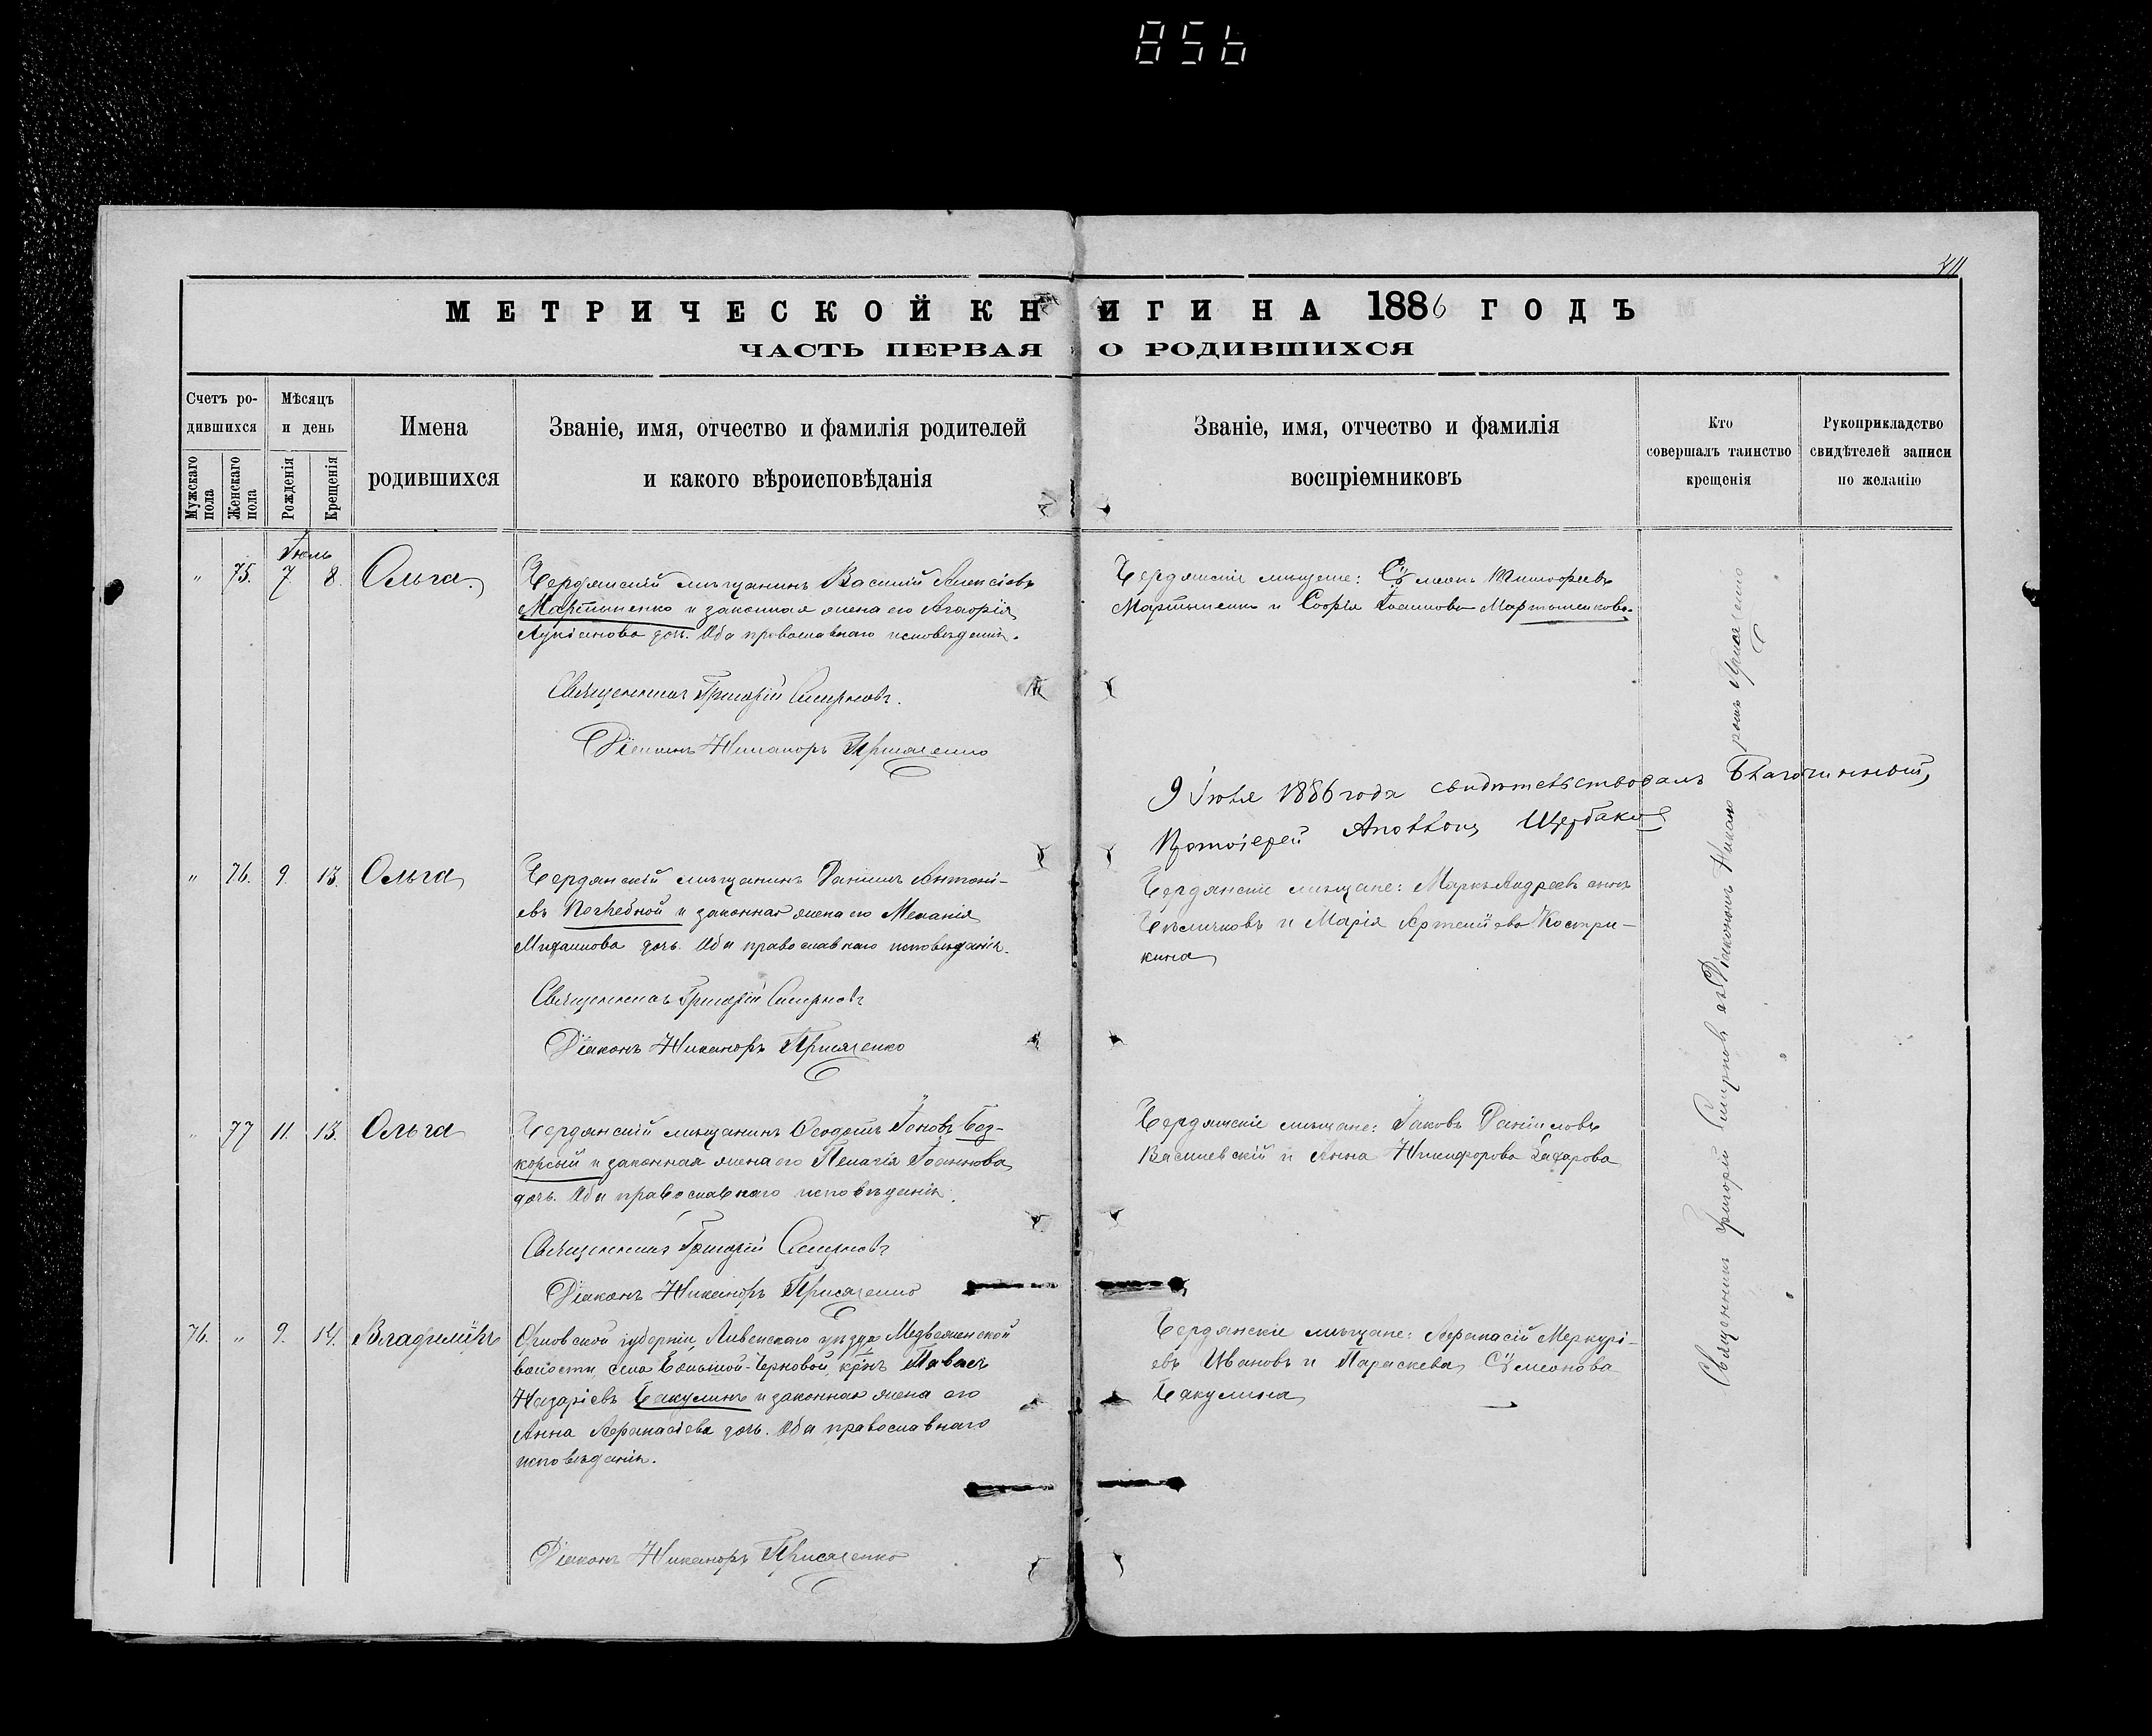 856
МЕТРИЧЕСКОЙ КНИГИ НА 1886 ГОДЪ
ЧАСТЬ ПЕРВАЯ О РОДИВШИХСЯ
Счетъ ро-
дившихся
Мужскаго пола
Женскаго пола
Мѣсяцъ
и день
Рожденія
Крещенія
Имена
родившихся
Званіе, имя, отчество и фамилія родителей
и какого вѣроисповѣданія
Званіе, имя, отчество и фамилія
воспріемниковъ
Кто
совершалъ таинство
крещенія
Рукоприкладство
свидѣтелей записи
по желанію
Іюль
" 75. 7 8. Ольга.
Бердянскій мѣщанинъ Василій Алексіевъ
Мартыненко и законная жена его
Лукіанова дочь. Оба православнаго исповѣданія.
Священникъ Григорій Смирновъ.
Діаконъ Никаноръ Присяженко
Бердянскіе мѣщане: Сѵмеонъ Тимофеевъ
Мартыненко и Софія Іоаннова Мартыненкова.
9 Іюля 1886 года свидѣтельствовалъ Благочинный,
Протоіерей Аполлонъ Щербаковъ
" 76. 9. 13. Ольга
Бердянскій мѣщанинъ Даніилъ Антоні-
евъ Погребной и законная жена его Меланія
дочь. Оба православнаго исповѣданія.
Священникъ Григорій Смирновъ
Діаконъ Никаноръ Присяженко
Бердянскіе мѣщане: Маркъ Андреевъ
и Марія Артеміева Костри-
кина
" 77 11. 13. Ольга
Бердянскій мѣщанинъ Ѳеодотъ Іоновъ Без-
корсый и законная жена его Пелагія Іоаннова
дочь. Оба православнаго исповѣданія.
Священникъ Григорій Смирновъ
Діаконъ Никаноръ Присяженко
Бердянскіе мѣщане: Іаковъ Даніиловъ
Василевскій и Анна Никифорова Захарова
76. " 9. 14. Владиміръ
Орловской губерніи, Ливенскаго уѣзда
волости, села Большой-Черновой, кр͠нъ Павелъ
Назаріевъ Бакулинъ и законная жена его
Анна Аѳанасіева дочь. Оба православнаго
исповѣданія.
Діаконъ Никаноръ Присяженко
Бердянскіе мѣщане: Аѳанасій Меркурі-
евъ Ивановъ и Параскева Сѵмеонова
Бакулина
Священникъ Григорій Смирновъ съ Діакономъ Никаноромъ Присяженко